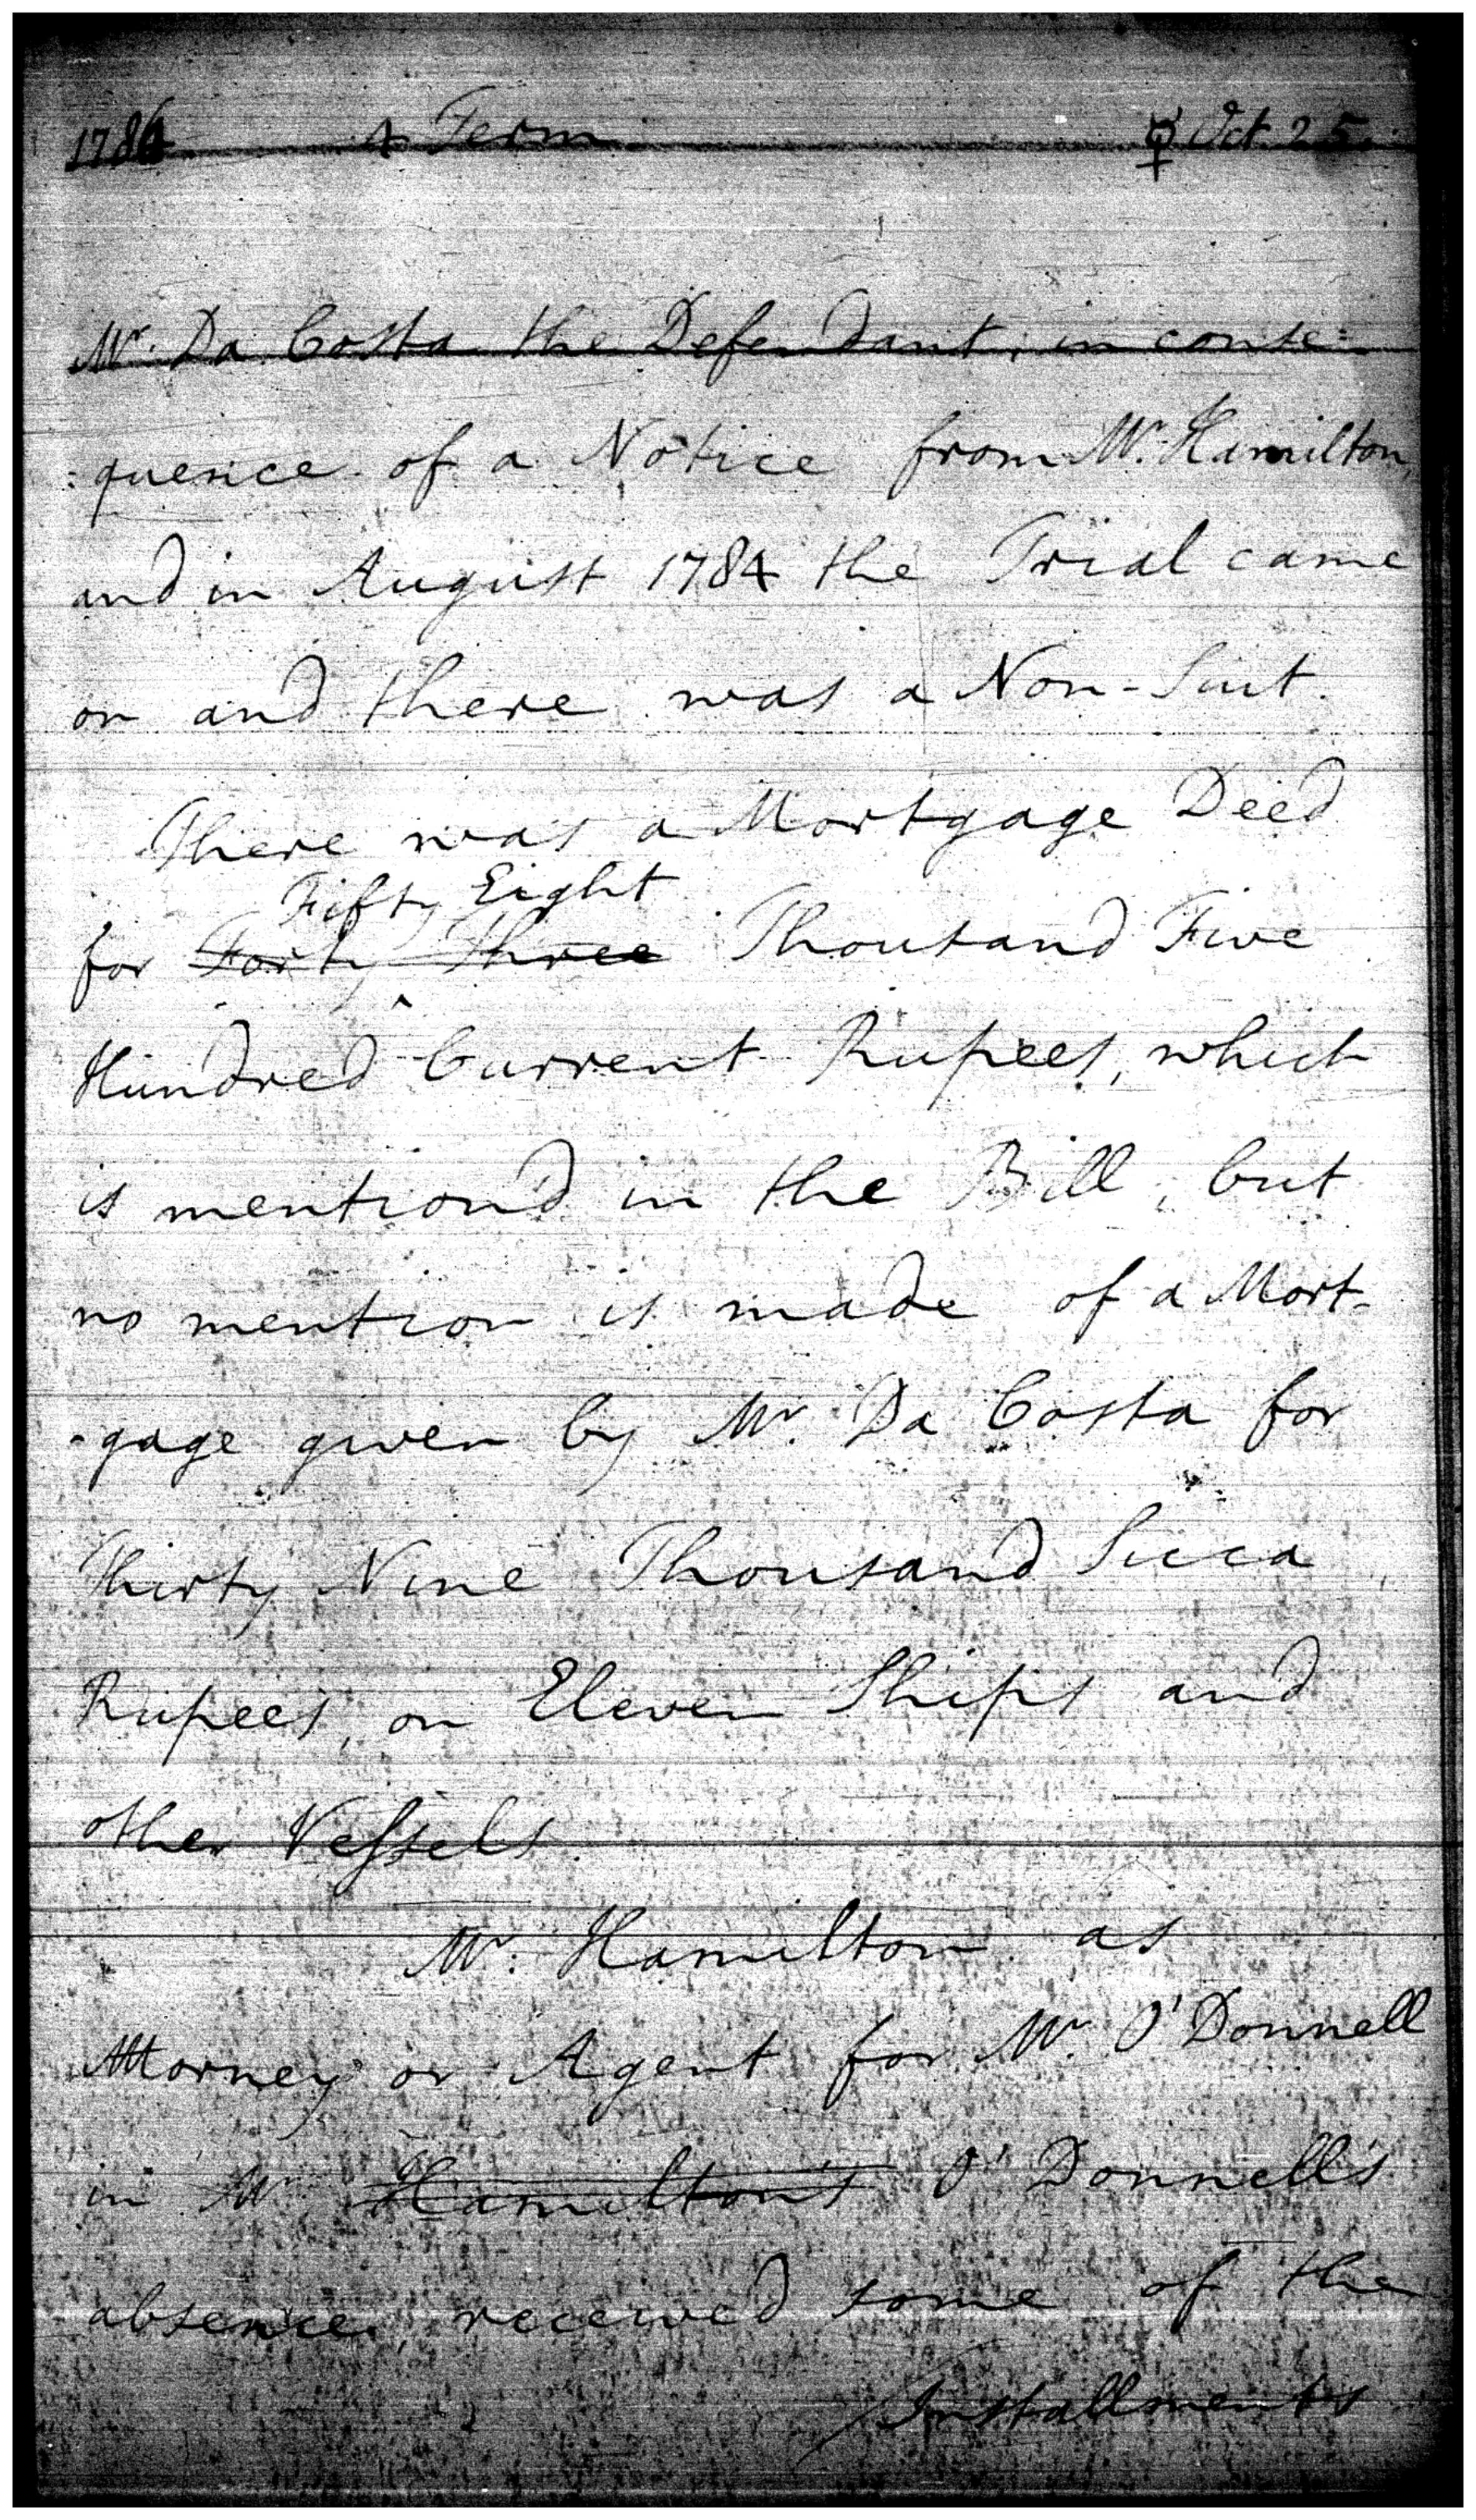 1786 4 Term ♀ Oct. 25.
Mr. Da Costa the Defendant, in conse=
:quence of a Notice from Mr. Hamilton,
and in August 1784 the Trial came
on and there was a Non-Suit.
There was a Mortgage Deed
Fifty Eight
for Forty Three Thousand Five
Hundred Current Rupees, which
is mention'd in the Bill, but
no mention is made of a Mort-
-gage given by Mr. Da Costa for
Thirty Nine Thousand Sicca
Rupees, on Eleven Ships and
other Vessels.
Mr. Hamilton as
Attorney or Agent for Mr. O'Donnell
in Mr. Hamilton's O'Donnell's
absence, received some of the
Installments